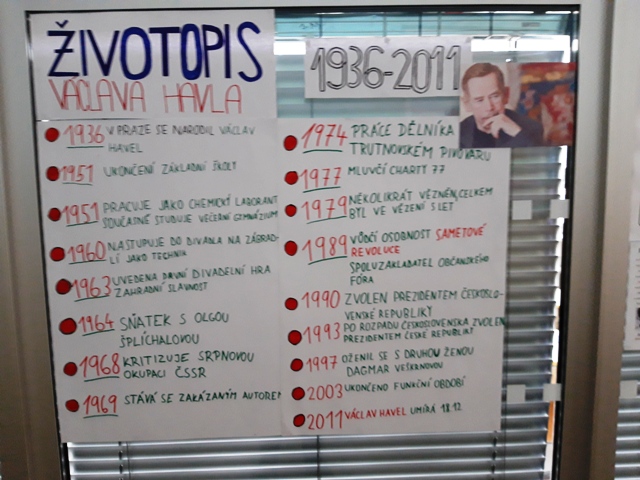 ŽIVOTOPIS
VÁCLAVA HAVLA
1936-2011
1936 V PRAZE SE NARODIL VÁCLAV
HAVEL
1951 UKONČENÍ ZÁKLADNÍ ŠKOLY
1951 PRACUJE JAKO CHEMICKÝ LABORANT
SOUČASNĚ STUDUJE VEČERNÍ GYMNÁZIUM
1960 NASTUPUJE DO DIVADLA NA ZÁBRAD-
LÍ JAKO TECHNIK
1963 UVEDENA PRVNÍ DIVADELNÍ HRA
ZAHRADNÍ SLAVNOST
1964 SŇATEK S OLGOU
ŠPLÍCHALOVOU
1968 KRITIZUJE SRPNOVOU
OKUPACI ČSSR
1969 STÁVÁ SE ZAKÁZANÝM AUTOREM
1974 PRÁCE DĚLNÍKA
TRUTNOVSKÉM PIVOVARU
1977 MLUVČÍ CHARTY 77
1979 NĚKOLIKRÁT VĚZNĚN, CELKEM
BYL VE VĚZENÍ 5 LET
1989 VŮDČÍ OSOBNOST SAMETOVÉ
REVOLUCE
SPOLUZAKLADATEL OBČANSKÉHO
FÓRA
1990 ZVOLEN PREZIDENTEM ČESKOSLO-
VENSKÉ REPUBLIKY
1993 PO ROZPADU ČESKOSLOVENSKA ZVOLEN
PREZIDENTEM ČESKÉ REPUBLIKY
1997 OŽENIL SE S DRUHOU ŽENOU
DAGMAR VEŠKRNOVOU
2003 UKONČENO FUNKČNÍ OBDOBÍ
2011 VÁCLAV HAVEL UMÍRÁ 18.12